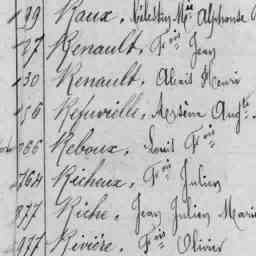 199 Raux, Célestin Mie Alphonse
27 Renault, Fois Jean
130 Renault, Alexis Henri
156 Refuveille, Arsène Augte
266 Reboux, Louis Fois
764 Richeux, Fois Julien
877 Riche, Jean Julien Marie
977 Rivière, Fois Olivier